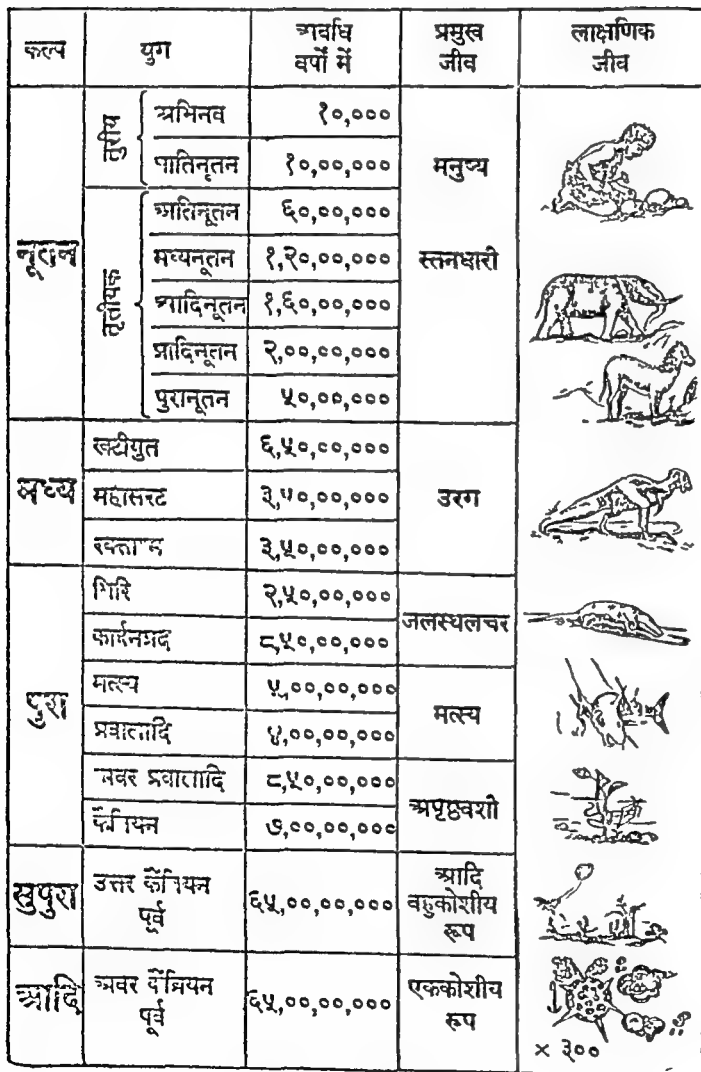 कल्प युग अवधि वर्षों में प्रमुख जीव लाक्षणिक जीव
नूतन तुरीय अभिनव १०,००० मनुष्य
पातिनूतन १०,००,०००
तृतीयक अतिनूतन ६०,००,००० स्तनधारी
मध्यनूतन १,२०,००,०००
आदिनूतन १,६०,००,०००
प्रादिनूतन २,००,००,०००
पुरानूतन ५०,००,०००
मध्य खटीयुत ६,५०,००,००० उरग
महासरट ३,५०,००,०००
३,५०,००,०००
पुरा गिरि २,५०,००,००० जलस्थलचर
कार्बनप्रद ८,५०,००,०००
मत्स्य ५,००,००,००० मत्स्य
प्रवालादि ४,००,००,०००
अवर प्रवालादि ८,५०,००,००० अपृष्ठवशी
कैंब्रियन ७,००,००,०००
सुपुरा उत्तर कैंब्रियन पूर्व ६५,००,००,००० आदि बहुकोशीय रूप
आदि अवर कैंब्रियन पूर्व ६५,००,००,००० एककोशीय रूप
× ३००